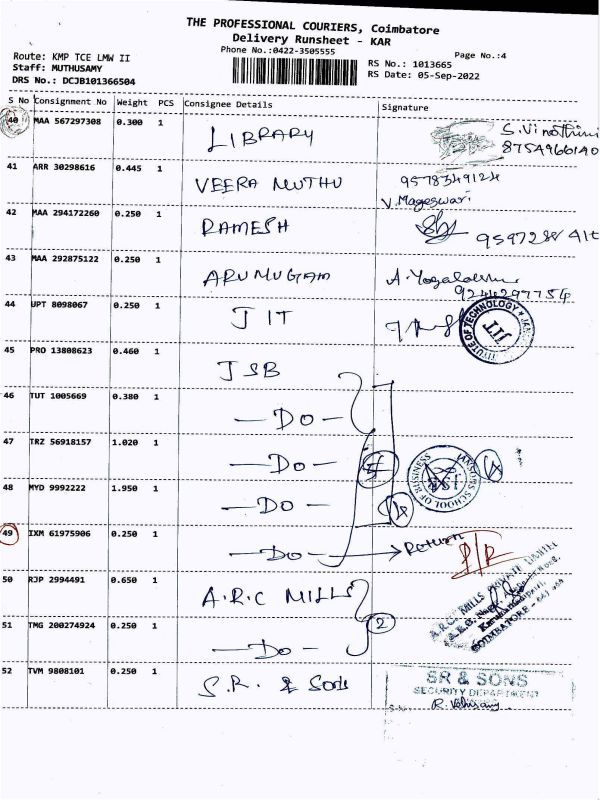 THE PROFESSIONAL COURIERS, Coimbatore
Delivery Runsheet - KAR
Phone No.:0422-3505555
Page No.:4
Route: KMP TCE LMW II
Staff: MUTHUSAMY
DRS No.: DCJB101366504
RS No.: 1013665
RS Date: 05-Sep-2022
S No Consignment No Weight PCS Consignee Details Signature
40 MAA 567297308 0.300 1 LIBRARY S.Vinothini
8754966140
41 ARR 30298616 0.445 1 VEERA MUTHU 9578349124
V.Mageswari
42 MAA 294172260 0.250 1 RAMESH
43 MAA 292875122 0.250 1 ARUMUGAM
9244297754
44 UPT 8098067 0.250 1 JIT INSTITUTE OF TECHNOLOGY JIT
45 PRO 13808623 0.460 1 JSB
46 TUT 1005669 0.380 1 —Do—
47 TRZ 56918157 1.020 1 —Do— JANSONS SCHOOL OF BUSINESS
48 MYD 9992222 1.950 1 —Do—
49 IXM 61975906 0.250 1 —Do— Return
50 RJP 2994491 0.650 1 A.R.C MILLS 2 A.R.C. MILLS PRIVATE LIMITED
COIMBATORE
51 TMG 200274924 0.250 1 —Do—
52 TVM 9808101 0.250 1 S.R. & Sons SR & SONS
SECURITY DEPARTMENT